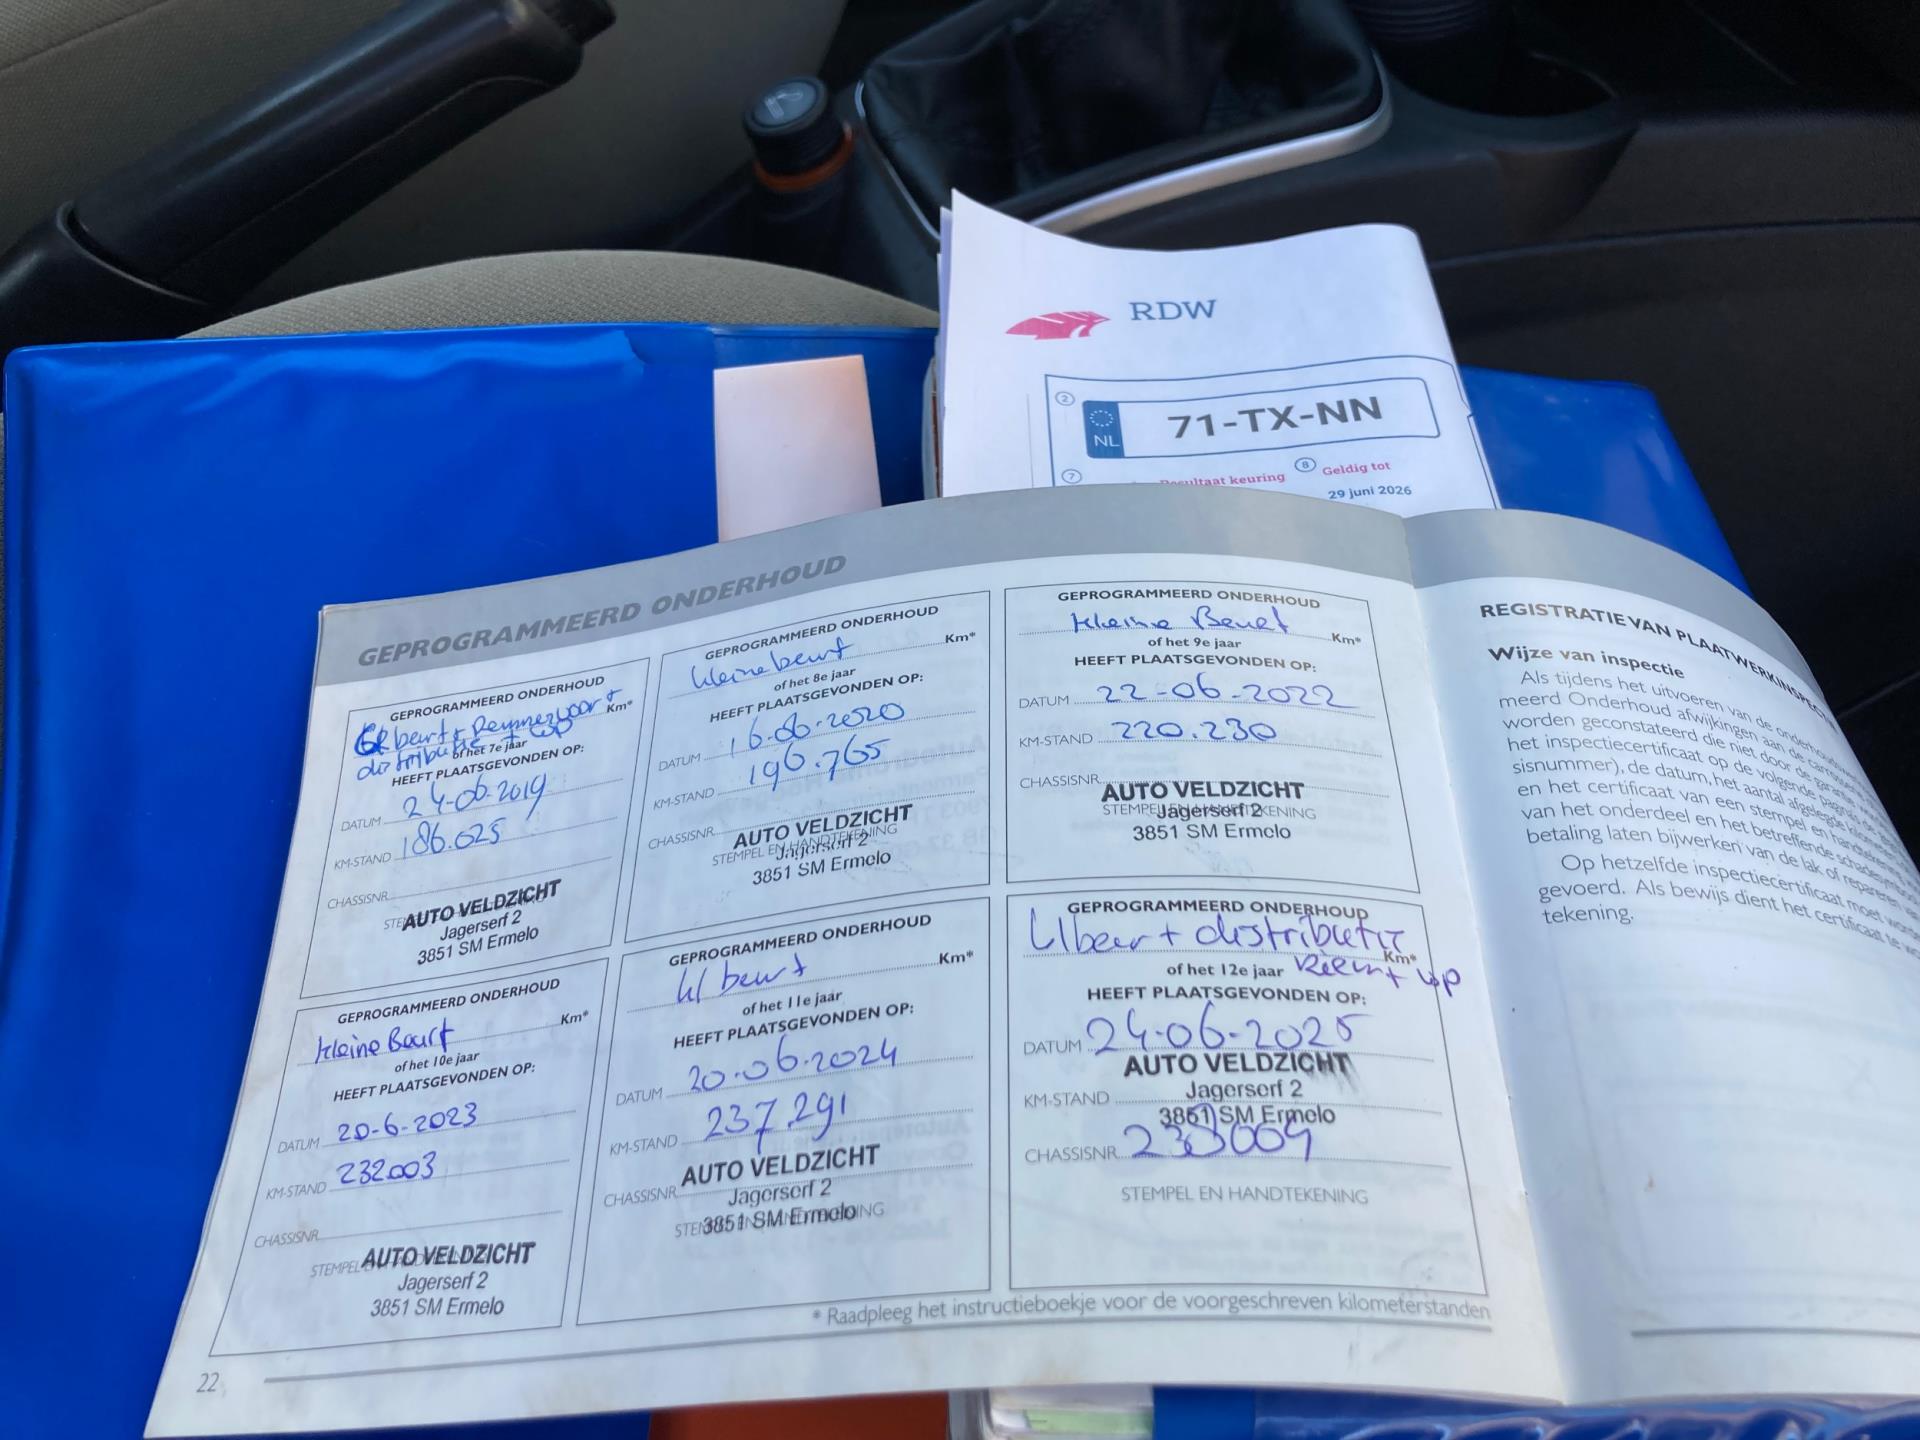 RDW
2
NL
71-TX-NN
7
Resultaat keuring
8
Geldig tot
29 juni 2026
GEPROGRAMMEERD ONDERHOUD
GEPROGRAMMEERD ONDERHOUD
Gr beurt + Remmen voor +
Km*
distributie + wp
of het 7e jaar
HEEFT PLAATSGEVONDEN OP:
DATUM 24-06-2019
KM-STAND 186.025
CHASSISNR.
AUTO VELDZICHT
Jagerserf 2
3851 SM Ermelo
GEPROGRAMMEERD ONDERHOUD
kleine beurt Km*
of het 8e jaar
HEEFT PLAATSGEVONDEN OP:
DATUM 16-06-2020
KM-STAND 196.765
CHASSISNR.
AUTO VELDZICHT
STEMPEL EN HANDTEKENING
Jagerserf 2
3851 SM Ermelo
GEPROGRAMMEERD ONDERHOUD
kleine Beurt Km*
of het 9e jaar
HEEFT PLAATSGEVONDEN OP:
DATUM 22-06-2022
KM-STAND 220.230
CHASSISNR.
AUTO VELDZICHT
STEMPEL EN HANDTEKENING
Jagerserf 2
3851 SM Ermelo
GEPROGRAMMEERD ONDERHOUD
kleine Beurt Km*
of het 10e jaar
HEEFT PLAATSGEVONDEN OP:
DATUM 20-6-2023
KM-STAND 232003
CHASSISNR.
AUTO VELDZICHT
Jagerserf 2
3851 SM Ermelo
GEPROGRAMMEERD ONDERHOUD
kl beurt Km*
of het 11e jaar
HEEFT PLAATSGEVONDEN OP:
DATUM 20-06-2024
KM-STAND 237.291
AUTO VELDZICHT
CHASSISNR.
Jagerserf 2
3851 SM Ermelo
GEPROGRAMMEERD ONDERHOUD
kl beur + distributie
Km*
of het 12e jaar Riem + wp
HEEFT PLAATSGEVONDEN OP:
DATUM 24-06-2025
AUTO VELDZICHT
Jagerserf 2
KM-STAND
3851 SM Ermelo
CHASSISNR.
STEMPEL EN HANDTEKENING
* Raadpleeg het instructieboekje voor de voorgeschreven kilometerstanden
22
REGISTRATIE VAN PLAATWERKINSPECTIE
Wijze van inspectie
Als tijdens het uitvoeren van de
meerd Onderhoud afwijkingen aan de
worden geconstateerd die niet door de garantie
het inspectiecertificaat op de volgende pagina's de
sisnummer), de datum, het aantal afgelegde
en het certificaat van een stempel en
van het onderdeel en het betreffende
betaling laten bijwerken van de lak of repareren van
Op hetzelfde inspectiecertificaat moet worden
gevoerd. Als bewijs dient het certificaat te
tekening.